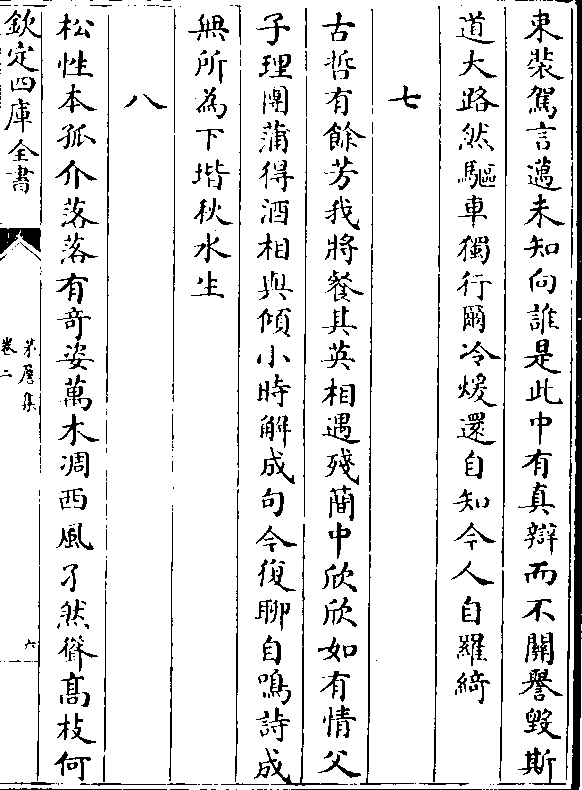 束裝駕言邁未知向誰是此中有真辯而不關譽毀斯
道大路然驅車獨行爾冷煖還自知今人自羅綺
七
古哲有餘芳我將餐其英相遇殘簡中欣欣如有情父
子理團蒲得酒相與傾小時解成句今復聊自鳴詩成
無所為下堦秋水生
八
松性本孤介落落有奇姿萬木凋西風孑然聳高枝何
欽定四庫全書
茅簷集
卷二
六